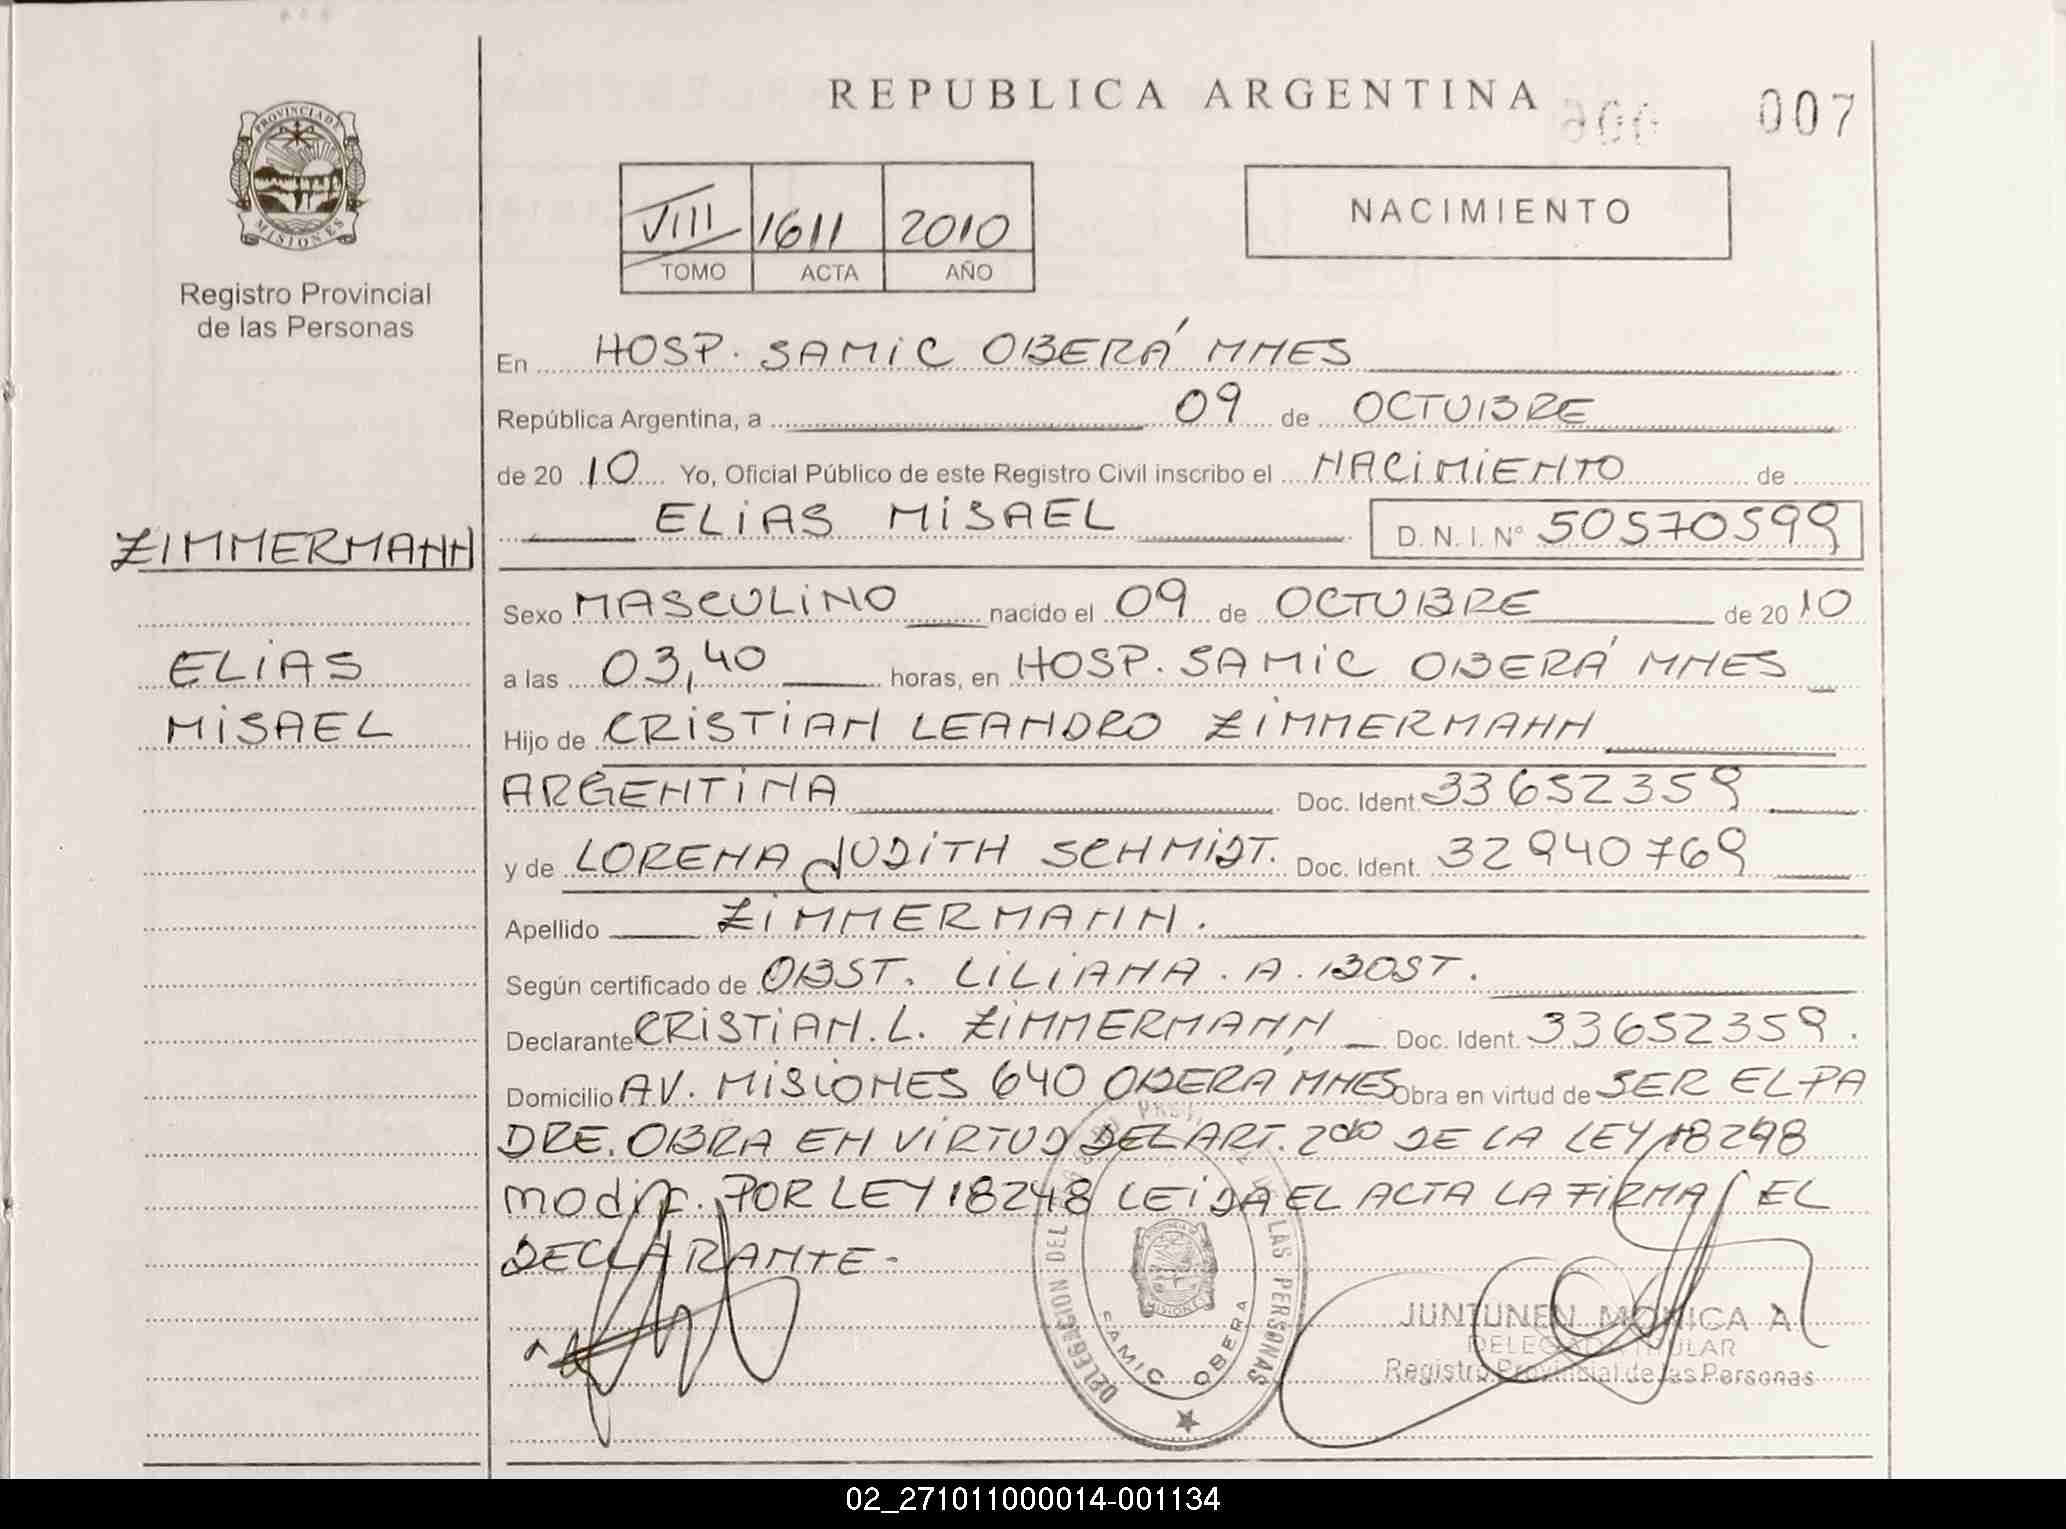 REPUBLICA ARGENTINA
007
PROVINCIA DE
MISIONES
Registro Provincial
de las Personas
VIII 1611 2010
TOMO ACTA AÑO
NACIMIENTO
En HOSP. SAMIC OBERÁ MNES
República Argentina, a 09 de OCTUBRE
de 20 10 Yo, Oficial Público de este Registro Civil inscribo el NACIMIENTO de
ELIAS MISAEL D. N. I. Nº 50570599
ZIMMERMANN
ELIAS
MISAEL
Sexo MASCULINO nacido el 09 de OCTUBRE de 20 10
a las 03,40 horas, en HOSP. SAMIC OBERÁ MNES
Hijo de CRISTIAN LEANDRO ZIMMERMANN
ARGENTINA Doc. Ident. 33652359
y de LORENA JUDITH SCHMIDT. Doc. Ident. 32940769
Apellido ZIMMERMANN.
Según certificado de OBST. LILIANA. A. BOST.
Declarante CRISTIAN. L. ZIMMERMANN Doc. Ident. 33652359.
Domicilio AV. MISIONES 640 OBERA, MNES Obra en virtud de SER EL PA
DRE. OBRA EN VIRTUD DEL ART. 2do DE LA LEY 18248
modif. POR LEY 18248 LEIDA EL ACTA LA FIRMA EL
DECLARANTE-
DELEGACION DEL LAS PERSONAS
MISIONES
SAMIC OBERA
JUNTUNEN MONICA A
DELEGADA TITULAR
Registro Provincial de las Personas
02_271011000014-001134